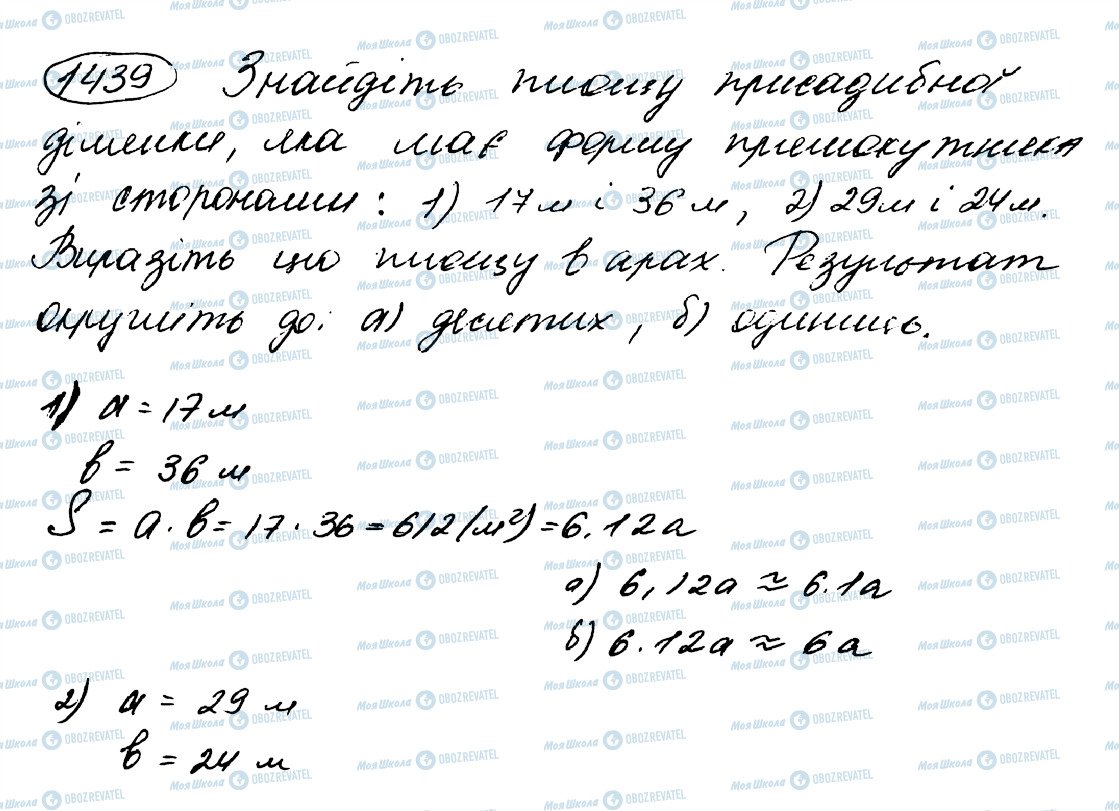 1439 Знайдіть площу присадибної
ділянки, яка має форму прямокутника
зі сторонами: 1) 17 м і 36 м, 2) 29 м і 24 м.
Виразіть цю площу в арах. Результат
округліть до: а) десятих, б) одиниць.
1) a = 17 м
b = 36 м
S = a · b = 17 · 36 = 612 (м²) = 6,12 а
а) 6,12 а ≈ 6,1 а
б) 6,12 а ≈ 6 а
2) a = 29 м
b = 24 м